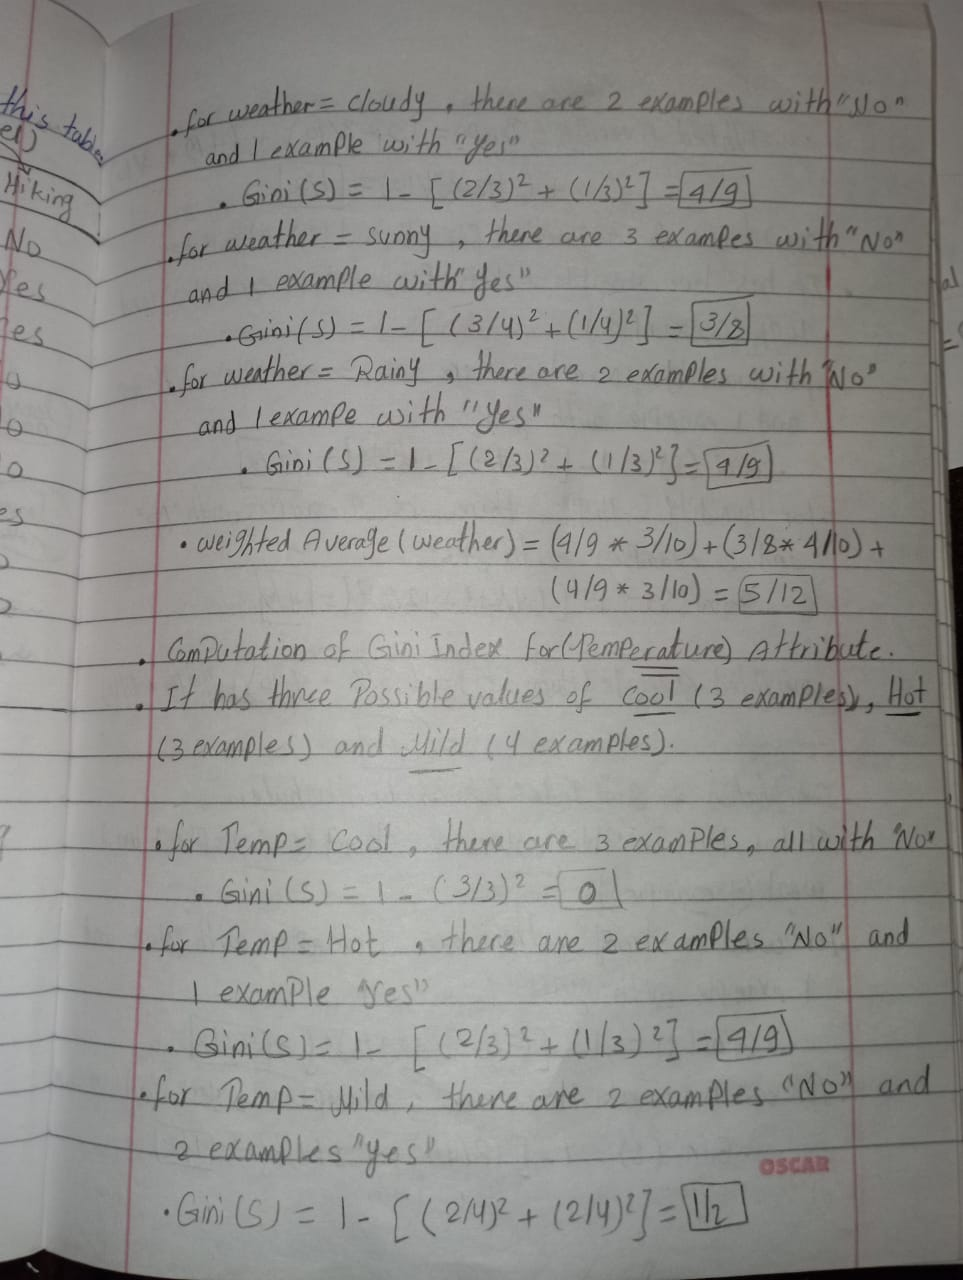 this table
el)
Hiking
No
Yes
Yes
.for weather = cloudy, there are 2 examples with "No"
and 1 example with "Yes"
. Gini (S) = 1 - [(2/3)² + (1/3)²] = 4/9
.for weather = sunny, there are 3 exampes with "No"
and 1 example with "Yes"
. Gini (S) = 1 - [(3/4)² + (1/4)²] = 3/8
.for weather = Rainy, there are 2 examples with "No"
and 1 exampe with "Yes"
. Gini (S) = 1 - [(2/3)² + (1/3)²] = 4/9
. weighted Average (weather) = (4/9 * 3/10) + (3/8 * 4/10) +
(4/9 * 3/10) = 5/12
. Computation of Gini Index for (Temperature) Attribute.
. It has three Possible values of Cool (3 examples), Hot
(3 examples) and Mild (4 examples).
. for Temp = Cool, there are 3 examples, all with No"
. Gini (S) = 1 - (3/3)² = 0
. for Temp = Hot, there are 2 examples "No" and
1 example "Yes"
. Gini (S) = 1 - [(2/3)² + (1/3)²] = 4/9
. for Temp = Mild, there are 2 examples "No" and
2 examples "Yes"
OSCAR
. Gini (S) = 1 - [(2/4)² + (2/4)²] = 1/2